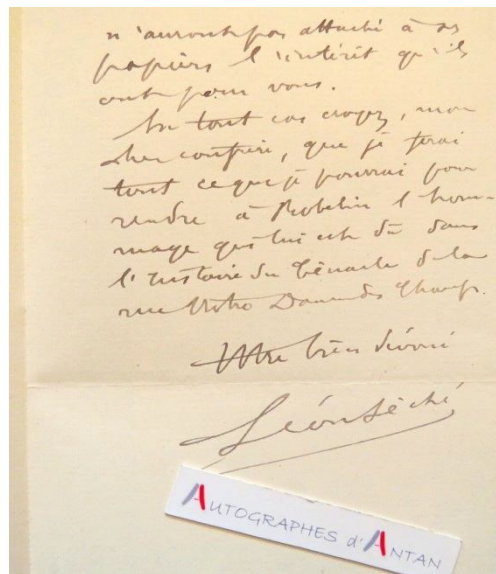 n'auront pas attaché à ses
papiers l'intérêt qu'ils
ont pour vous.
En tout cas croyez, mon
cher confrère, que je ferai
tout ce que je pourrai pour
rendre à Robelin l'hom-
mage qui lui est dû dans
l'histoire du Cénacle de la
rue Notre Dame des Champs.
Votre bien dévoué
Léon Séché
AUTOGRAPHES d'ANTAN